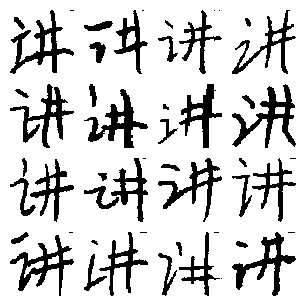 讲讲讲讲
讲讲讲讲
讲讲讲讲
讲讲讲讲